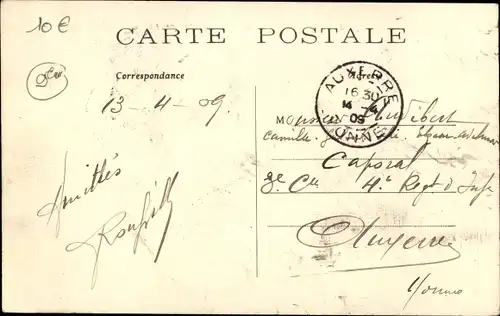 10€
CARTE POSTALE
Correspondance
Adresse
13-4-09.
AUXERRE
16 30
14 -4
09
YONNE
Monsieur
Camille
Amitiés
Caporal
9e Cie 4e Regt d'Inf
Auxerre
Yonne